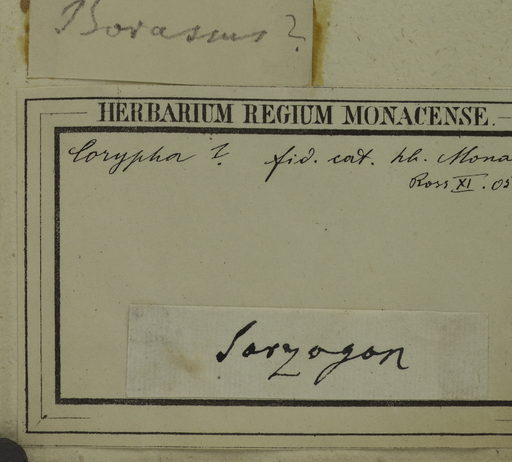 Borassus ?
HERBARIUM REGIUM MONACENSE.
Corypha ? fid. cat. hb. Mona
Ross XI. 05
Sarzogon